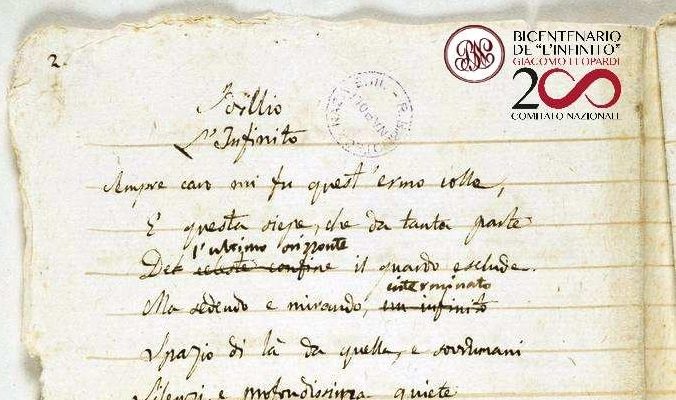 2.
Idillio
L'Infinito
Sempre caro mi fu quest'ermo colle,
E questa siepe, che da tanta parte
l'ultimo orizzonte
Del celeste confine il guardo esclude.
interminato
Ma sedendo e mirando, un infinito
Spazio di là da quella, e sovrumani
Silenzi, e profondissima quiete
BICENTENARIO
DE "L'INFINITO"
GIACOMO LEOPARDI
200
COMITATO NAZIONALE